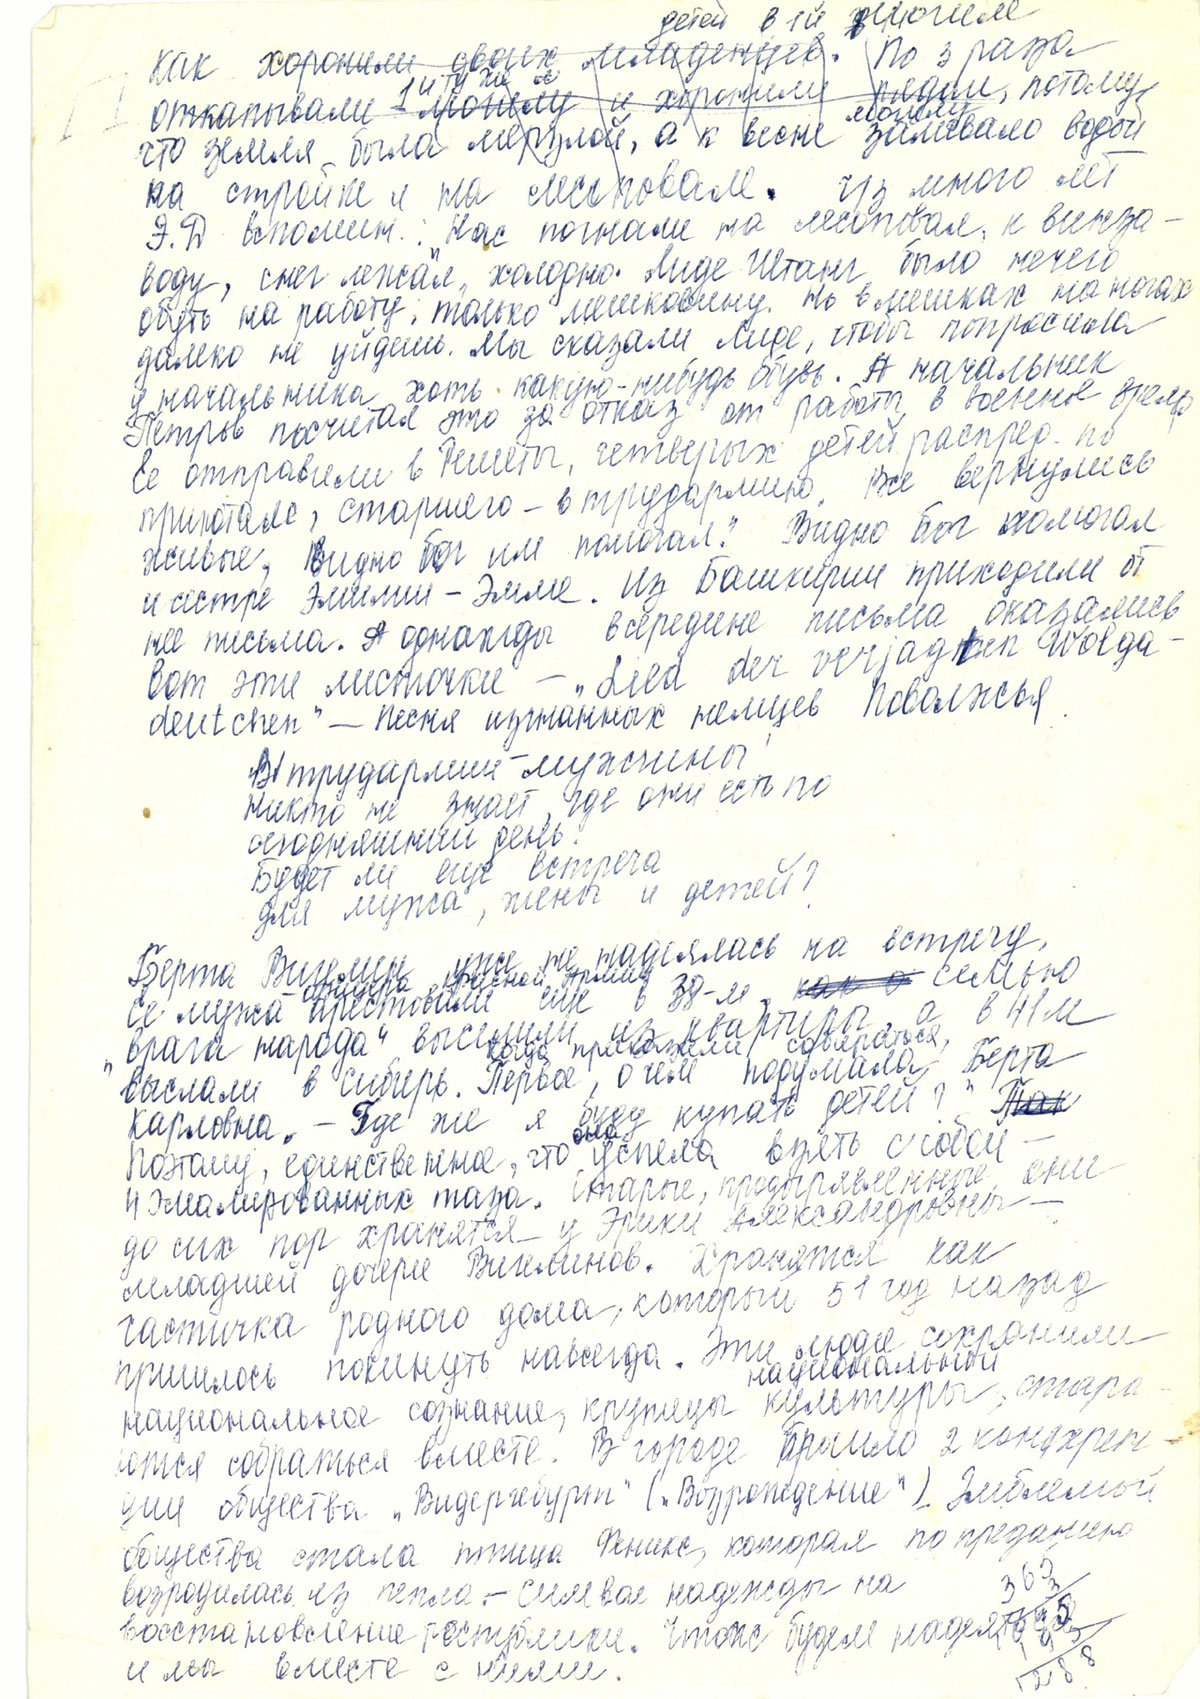 детей в 1й могиле
как хоронили двоих младенцев. По 3 раза
откапывали 1 и ту же могилу и хоронили рядом, потому,
могилы
что земля была мерзлой, а к весне заливало водой
на стройке и на лесоповале. Из много лет
Э.Д вспомин.: „Нас погнали на лесоповал, к винза-
воду, снег лежал, холодно. Лиде Штанг было нечего
обуть на работу, только мешковину. Но в мешках на ногах
далеко не уйдешь. Мы сказали Лиде, чтобы попросила
у начальника хоть какую-нибудь обувь. А начальник
Петров посчитал это за отказ от работы в военное время
Ее отправили в Решеты, четверых детей распред. по
приютам, старшего – в трудармию. Все вернулись
живые, видно бог им помогал." Видно бог помогал
и сестре Эмилии – Эмме. Из Башкирии приходили от
нее письма. А однажды в середине письма оказались
вот эти листочки – „Lied der verjagten Wolga-
deutchen" – Песня изгнанных немцев Поволжья.
В трудармии – мужчины
Никто не знает, где они есть по
сегодняшний день.
Будет ли еще встреча
для мужа, жены и детей?
Берта Вигелин уже не надеялась на встречу,
офицера красной армии
Ее мужа арестовали еще в 38-м, как а семью
„врага народа" выселили из квартиры, а в 41м
когда приказали собираться,
выслали в Сибирь. Первое, о чем подумала Берта
Карловна, – Где же я буду купать детей?" Так
Поэтому, единственное, что она успела взять с собой –
4 эмалированных таза. Старые, продырявленные, они
до сих пор хранятся у Эрики Александровны –
младшей дочери Вигелинов. Хранятся как
частичка родного дома, который 51 год назад
пришлось покинуть навсегда. Эти люди сохранили
национальной
национальное сознание, крупицы культуры, стара-
ются собраться вместе. В городе прошло 2 конферен-
ции общества „Видергебурт" („Возрождение"). Эмблемой
общества стала птица Феникс, которая по преданию
возродилась из пепла – символ надежды на
восстановление республики. Что ж будем надеяться
и мы вместе с ними.